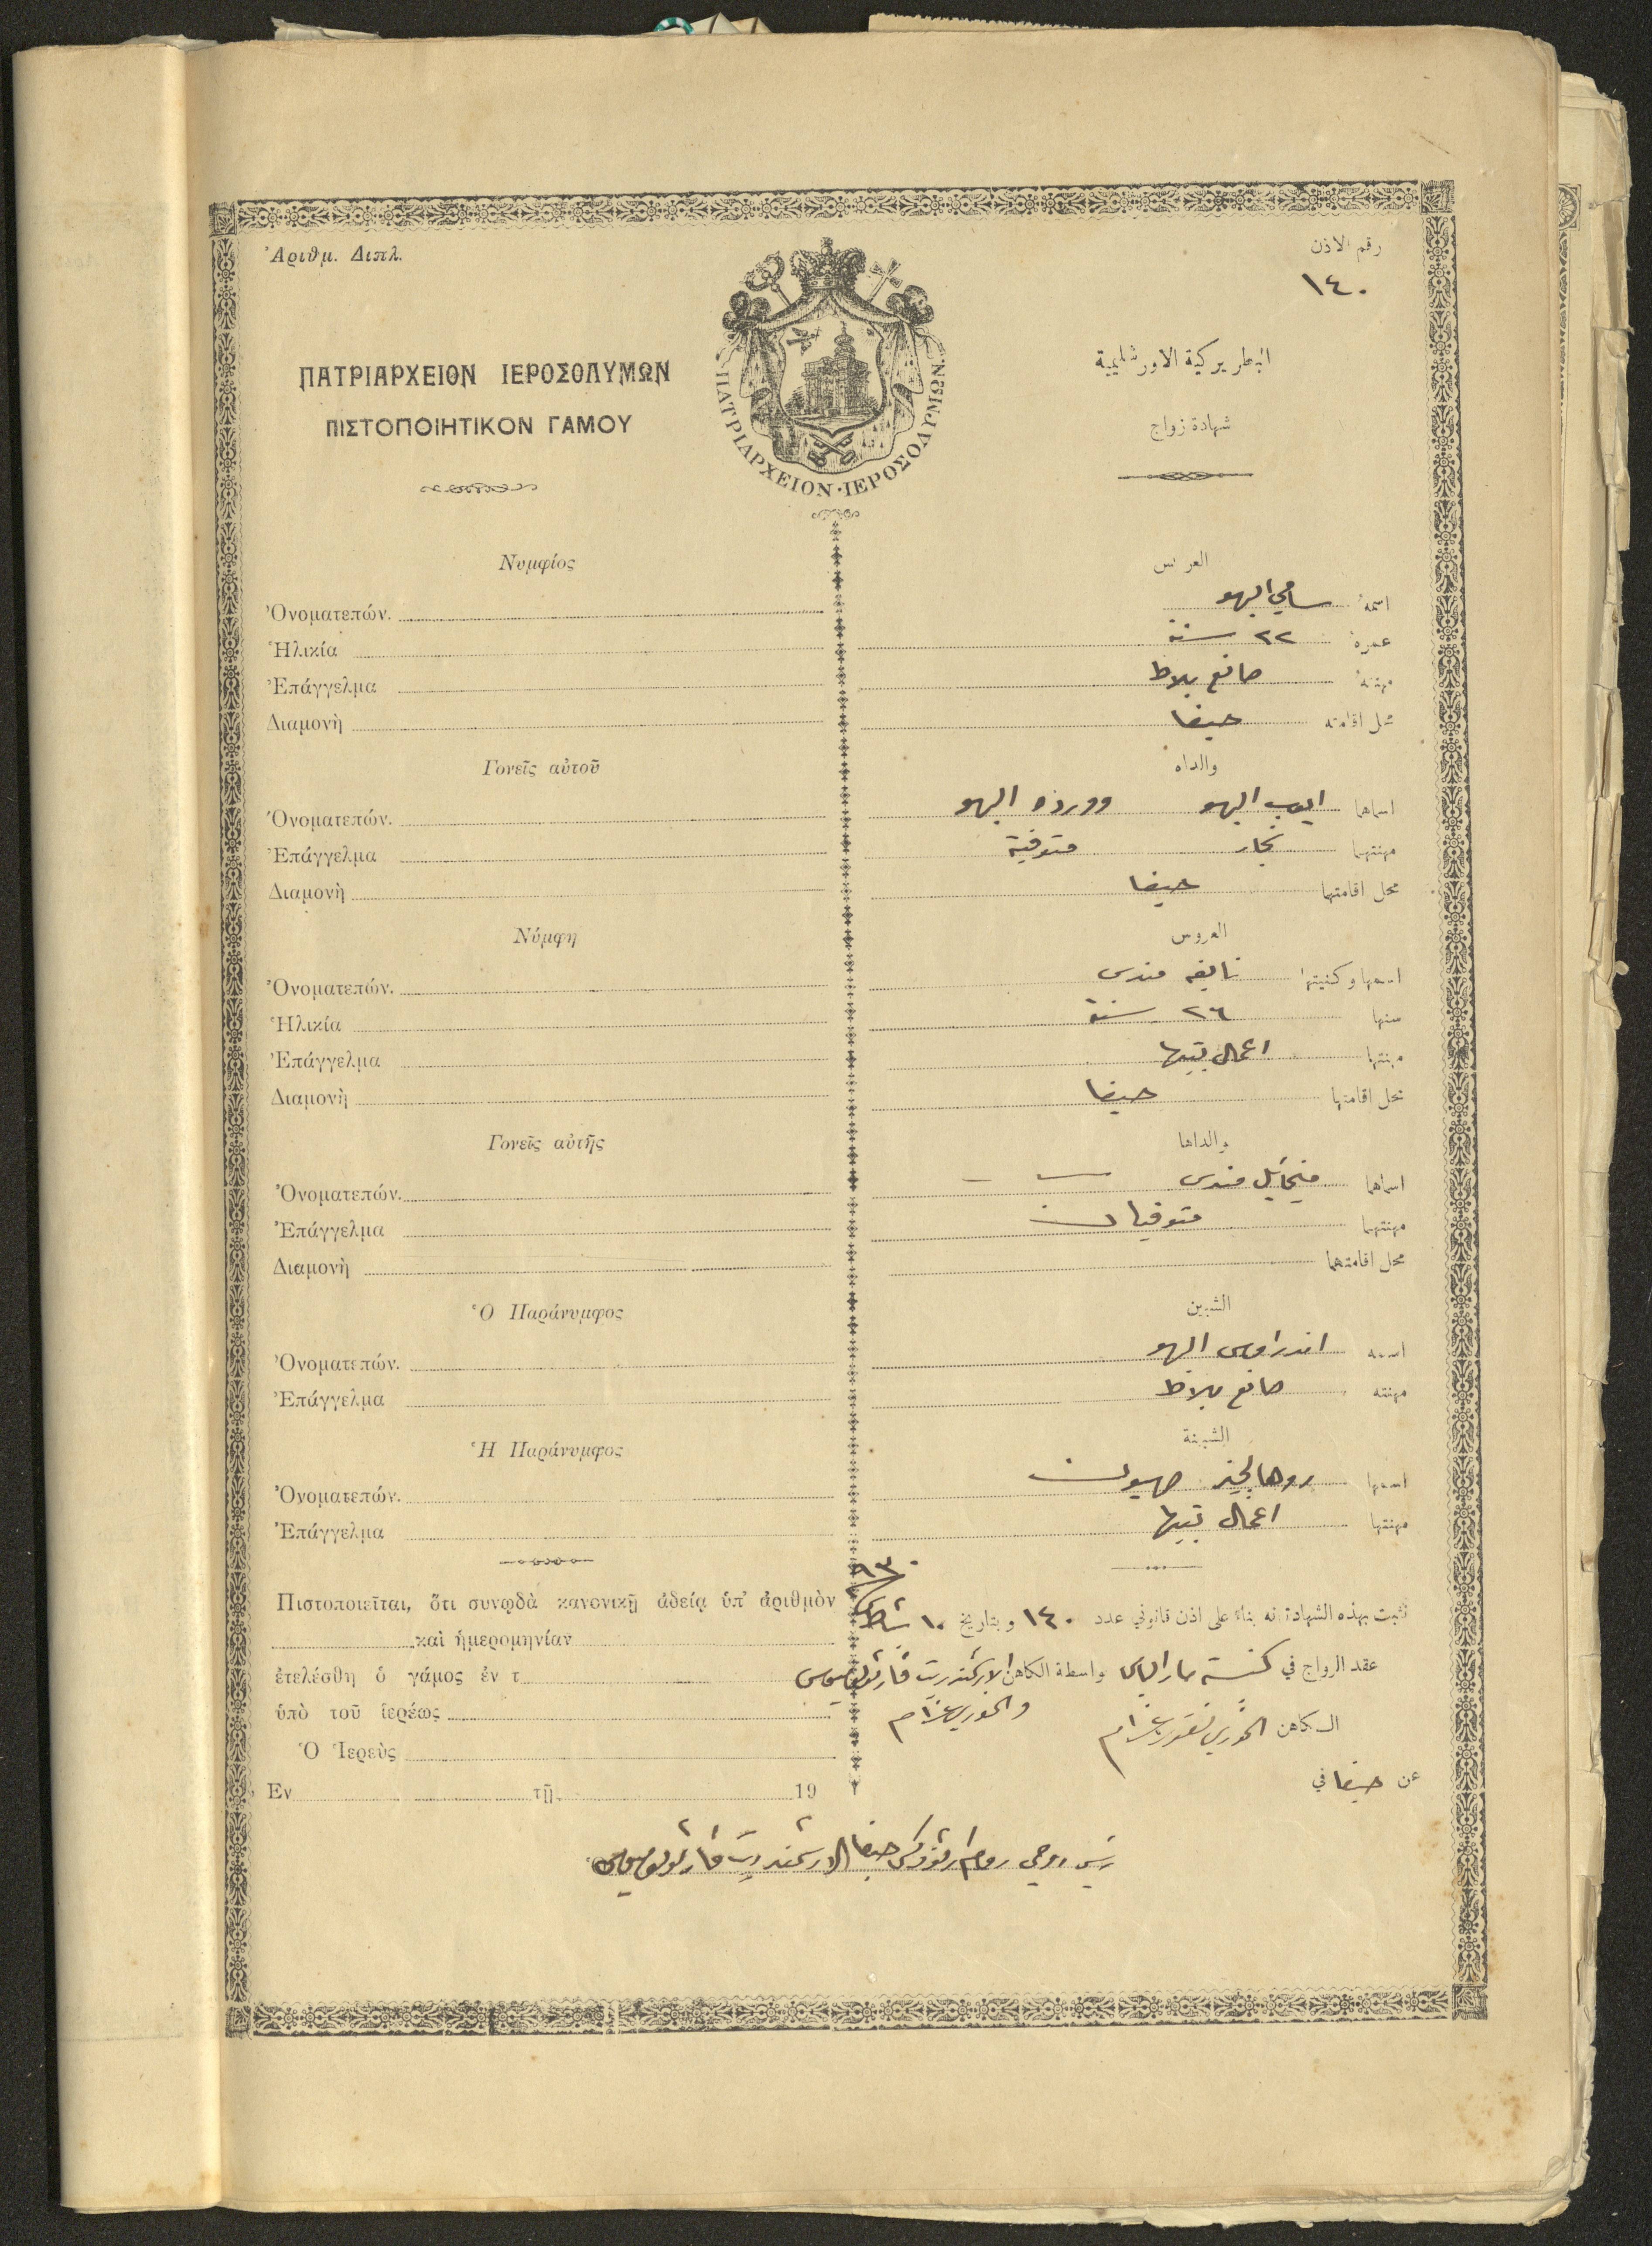 Ἀριθμ. Διπλ.
رقم الاذن
١٤٠
ΠΑΤΡΙΑΡΧΕΙΟΝ ΙΕΡΟΣΟΛΥΜΩΝ
البطريركية الاورشليمية
ΠΙΣΤΟΠΟΙΗΤΙΚΟΝ ΓΑΜΟΥ
شهادة زواج
ΠΑΤΡΙΑΡΧΕΙΟΝ·ΙΕΡΟΣΟΛΥΜΩΝ
Νυμφίος
العريس
Ὀνοματεπών.
اسمه سامي البهو
Ἡλικία
عمره ٢٢ سنة
Ἐπάγγελμα
مهنته صانع بلاط
Διαμονὴ
محل اقامته حيفا
Γονεῖς αὐτοῦ
والداه
Ὀνοματεπών.
اسماهما ايوب البهو ووردة البهو
Ἐπάγγελμα
مهنتهما نجار متوفية
Διαμονὴ
محل اقامتهما حيفا
Νύμφη
العروس
Ὀνοματεπών.
اسمها وكنيتها نايفه
Ἡλικία
سنها ٢٦ سنة
Ἐπάγγελμα
مهنتها اعمال بيتها
Διαμονὴ
محل اقامتها حيفا
Γονεῖς αὐτῆς
والداها
Ὀνοματεπών.
اسماهما ميخائيل
Ἐπάγγελμα
مهنتهما متوفيان
Διαμονὴ
محل اقامتهما
Ὁ Παράνυμφος
الشبين
Ὀνοματεπών.
اسمه اندراوس البهو
Ἐπάγγελμα
مهنته صانع بلاط
Ἡ Παράνυμφος
الشبينة
Ὀνοματεπών.
اسمها صهيون
Ἐπάγγελμα
مهنتها اعمال بيتها
٩٣٠
Πιστοποιεῖται, ὅτι συνῳδὰ κανονικῇ ἀδείᾳ ὑπ' ἀριθμὸν
نثبت بهذه الشهادة انه بناء على اذن قانوني عدد ١٤٠ وبتاريخ ١٠ شباط
καὶ ἡμερομηνίαν
ἐτελέσθη ὁ γάμος ἐν τ
عقد الزواج في كنيسة مار الياس بواسطة الكاهن الارشمندريت
ὑπὸ τοῦ ἱερέως
والخوري
الكاهن الخوري
Ὁ Ἱερεὺς
Ἐν τῇ 19
عن حيفا في
رئيس روحي روم ارثوذكس حيفا الارشمندريت